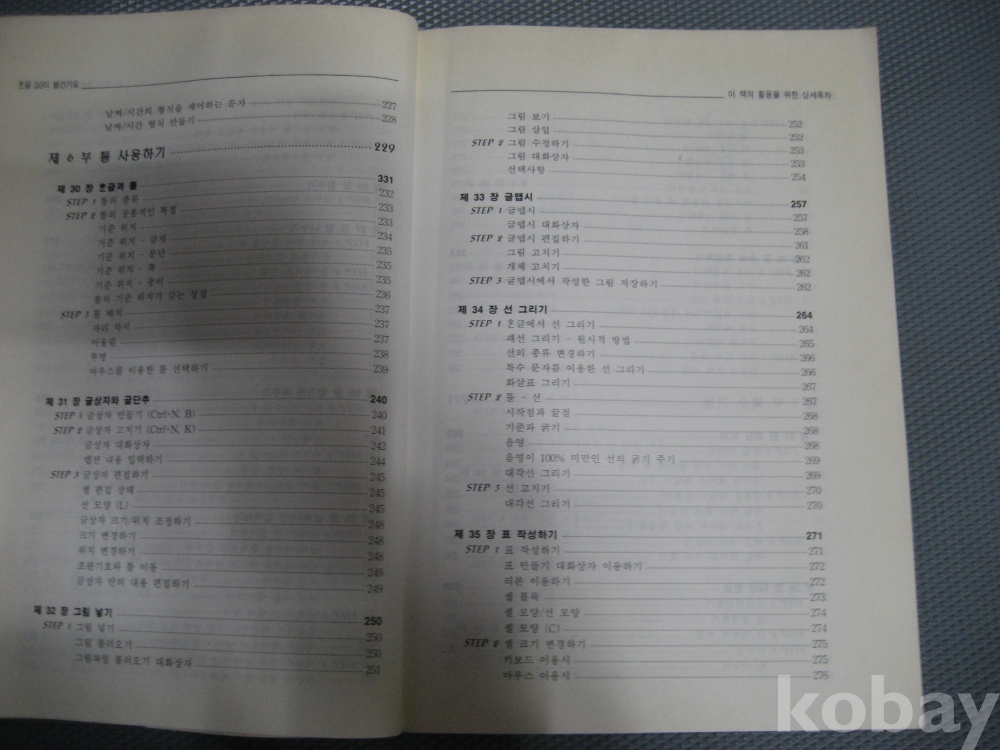 흔글 3.0이 발간가요
날짜/시간의 형식을 제어하는 문자 227
날짜/시간 형식 만들기 228
제 6 부 틀 사용하기 229
제 30 장 흔글과 틀 331
STEP 1 틀의 종류 232
STEP 2 틀의 공통적인 특징 233
기준 위치 233
기준 위치 - 글자 234
기준 위치 - 문단 235
기준 위치 - 쪽 235
기준 위치 - 종이 235
틀의 기준 위치가 갖는 성질 236
STEP 3 틀 배치 237
자리 차지 237
어울림 237
투명 238
마우스를 이용한 틀 선택하기 239
제 31 장 글상자와 글단추 240
STEP 1 글상자 만들기 (Ctrl+N, B) 240
STEP 2 글상자 고치기 (Ctrl+N, K) 241
글상자 대화상자 242
캡션 내용 입력하기 244
STEP 3 글상자 편집하기 245
셀 편집 상태 245
선 모양 (L) 245
글상자 크기/위치 조절하기 248
크기 변경하기 248
위치 변경하기 248
조판기호와 틀 이동 249
글상자 안의 내용 편집하기 249
제 32 장 그림 넣기 250
STEP 1 그림 넣기 250
그림 불러오기 250
그림파일 불러오기 대화상자 251
이 책의 활용을 위한 상세목차
그림 보기 252
그림 삽입 252
STEP 2 그림 수정하기 253
그림 대화상자 253
선택사항 254
제 33 장 글맵시 257
STEP 1 글맵시 257
글맵시 대화상자 258
STEP 2 글맵시 편집하기 261
그림 고치기 262
개체 고치기 262
STEP 3 글맵시에서 작성한 그림 저장하기 262
제 34 장 선 그리기 264
STEP 1 흔글에서 선 그리기 264
괘선 그리기 - 원시적 방법 265
선의 종류 변경하기 266
특수 문자를 이용한 선 그리기 266
화살표 그리기 267
STEP 2 틀 - 선 267
시작점과 끝점 268
기준과 굵기 268
음영 268
음영이 100% 미만인 선의 굵기 주기 269
대각선 그리기 269
STEP 3 선 고치기 270
대각선 그리기 270
제 35 장 표 작성하기 271
STEP 1 표 작성하기 271
표 만들기 대화상자 이용하기 272
리본 이용하기 272
셀 블록 273
셀 모양/선 모양 274
셀 모양 (C) 274
STEP 2 셀 크기 변경하기 275
키보드 이용시 275
마우스 이용시 276
kobay